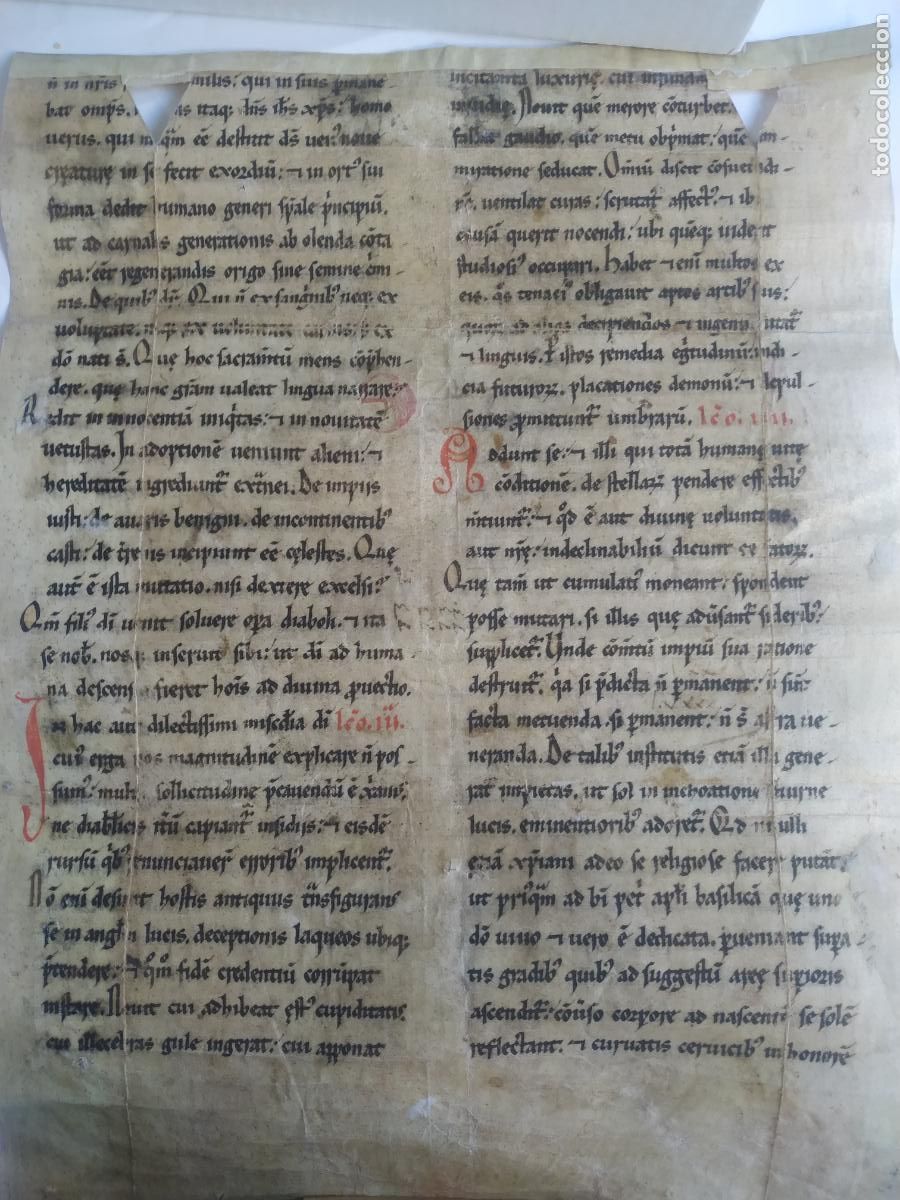 n̄ in nr̄is milis: qui in suis p̄mane
bat omp̄s. as itaq; dn̄s ih̄s xp̄s: homo
uerus. qui n q̄m eē destitit dš ueꝰ: noue
creaturę in se fecit exordiū: ⁊ in ortꝰ sui
forma dedit humano generi spāle p̄ncipiū.
ut ad carnalis generationis abolenda cōta
gia: eēt regenerandis origo sine semine c̄mi-
nis. De quibꝰ dr̄. Qui n̄ ex sanguibꝰ neq; ex
uoluptate. neq; ex uoluntate carnis. s; ex
dō nati s̄. Quę hoc sacramtū mens cōp̄hen-
dere. quę hanc gr̄am ualeat lingua narrare?
Redit in innocentiā iniq̇tas: ⁊ in nouitatē
uetustas. In adoptionē ueniunt alieni: ⁊
hereditatē ingrediunt᷑ ext̄nei. De impiis
iusti: de auaris benigni. de incontinentibꝰ
casti: de t̄renis incipiunt eē cęlestes. Quę
aut̄ ē ista mutatio. nisi dextere excelsi?
Qm̄ filiꝰ dī uenit soluere op̄a diaboli. ⁊ ita
se nob̄. nosq; inseruit sibi: ut dī ad huma-
na descensio fieret hōis ad diuina ꝓuectio.
In hac aut̄ dilectissimi mis̄cdia dī lc̄o. iii.
cuiꝰ erga nos magnitudinē explicare n̄ pos-
sumꝰ: multa sollicitudine p̄cauendū ē xānis:
ne diab̄licis it̄ū capiant᷑ insidiis: ⁊ eisdē
rursū q̇bꝰ renunciauer̄ erroribꝰ implicent᷑.
Nō eni desinit hostis antiquus t̄nsfigurans
se in angl̄m lucis. deceptionis laqueos ubiq;
p̄tendere: ⁊ q̊q̊m̊ fidē credentiū corrūpat
instare. Nouit cui adhibeat ęstꝰ cupiditatis.
cui illecebras gule ingerat: cui apponat
incitanta luxurię. cui infundat
inuidię. Nouit quē merore cōturbet.
fallat gaudio. quē metu obp̄mat: quē am-
miratione seducat. Omniū discit cōsuetudi-
nē. uentilat curas: scrutat᷑ affectꝰ: ⁊ ibi
causā querit nocendi: ubi quēq; uiderit
studiosiꝰ occupari. Habet ⁊ enī multos ex
eis. q̊s tenaciꝰ obligauit aptos artibꝰ suis:
quoꝝ ad alios decipiendos ⁊ ingeniis utat᷑
⁊ linguis. P istos remedia eg̊tudinū: indi-
cia futuroꝝ. placationes demonū: ⁊ depul-
siones ꝓmittunt᷑ umbrarū. lc̄o. iiii.
Addunt se: ⁊ illi qui totā humanę uitę
cōditionē. de stellaꝝ pendere effectibꝰ
mitiunt᷑: ⁊ q̊d ē aut diuinę uoluntatis.
aut nr̄ę: indeclinabiliū dicunt ee fatoꝝ.
Quę tam̄ ut cumulatiꝰ moneant: spondent
posse mutari. si illis quę adūsant᷑ sideribꝰ
supplicet᷑. Unde cōmtū impiū sua ratione
destruit᷑. q̇a si p̄dicta n̄ p̄manent: n̄ sun̄t
facta metuenda. si p̄manent: n̄ s̄ astra ue-
neranda. De talibꝰ institutis etiā illa gene-
rat᷑ impietas. ut sol in inchoatione diurne
lucis. eminentioribꝰ adoret᷑. Qd nulli
etiā xp̄iani adeo se religiose facere putāt:
ut priꝰq̄m ad bī pet̊ apl̄i basilicā quę uno
dō uiuo ⁊ uero ē dedicata. ꝑueniant supa-
tis gradibꝰ quibꝰ ad suggestū areę superioris
ascendit᷑: cōūso corpore ad nascentē se solē
reflectant. ⁊ curuatis ceruicibꝰ in honorē
todocoleccion